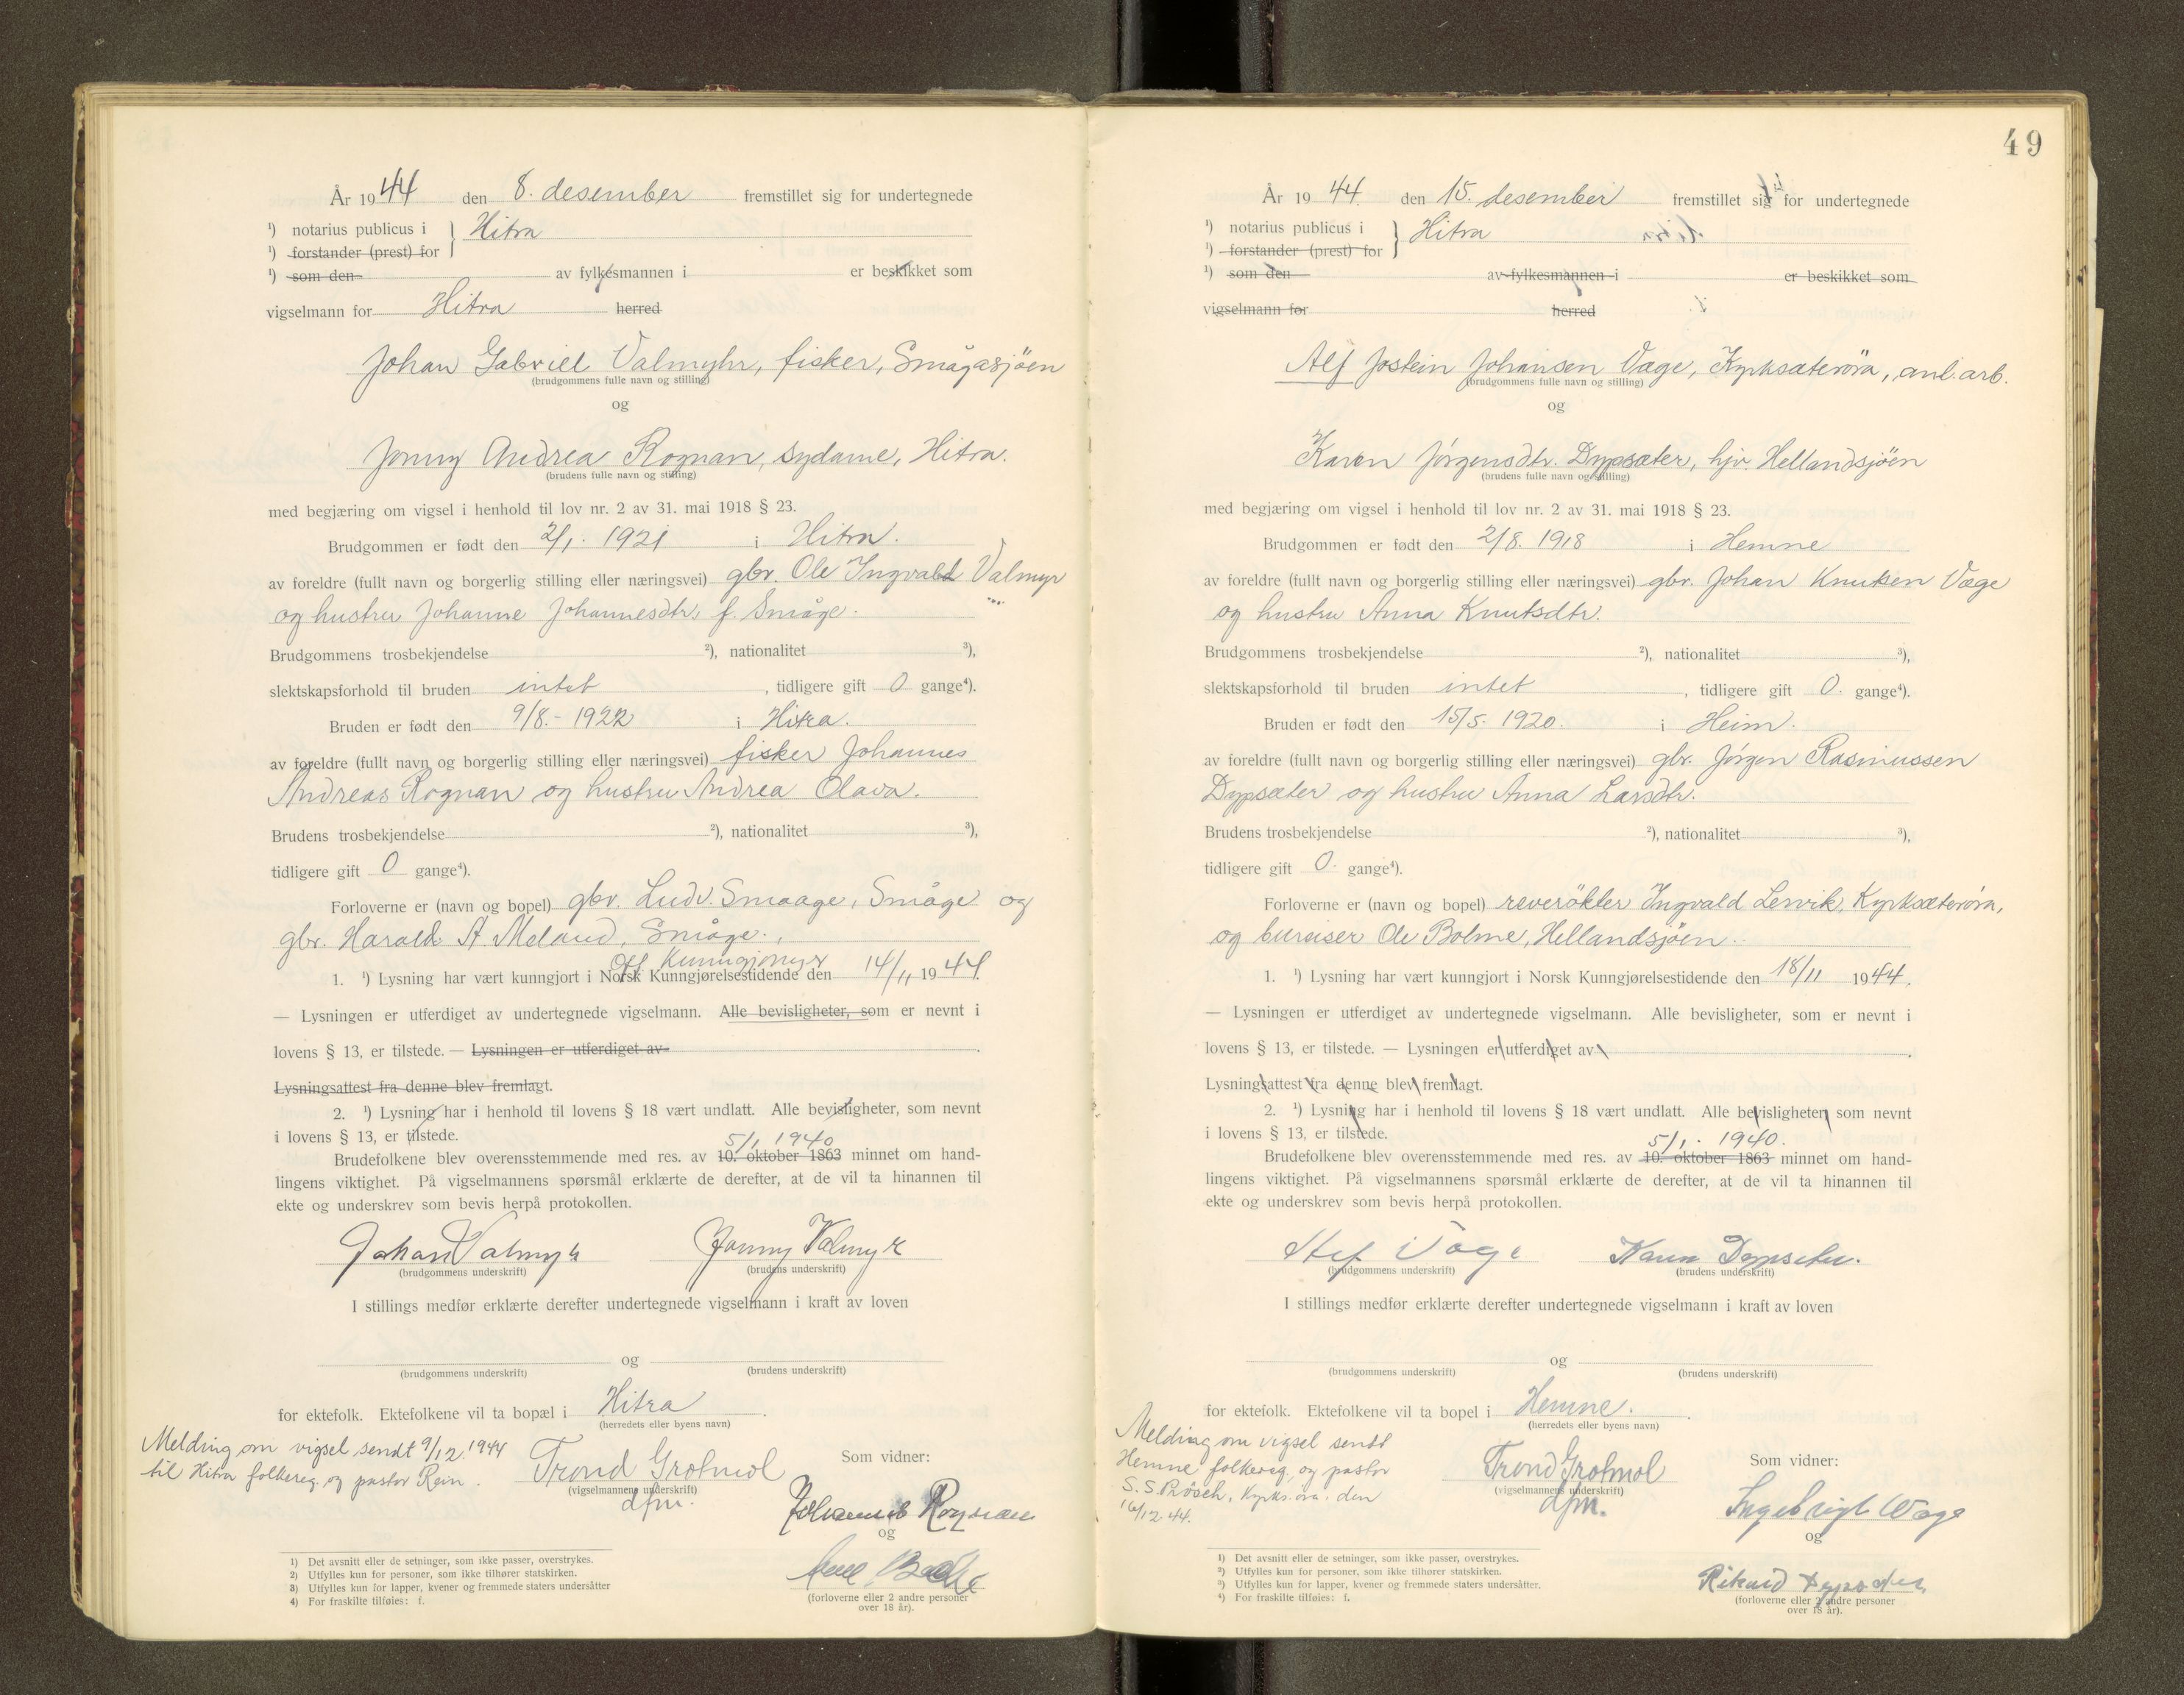 År 1944 den 8. desember fremstillet sig for undertegnede
¹) notarius publicus i } Hitra
¹) forstander (prest) for
¹) som den av fylkesmannen i er beskikket som
vigselmann for Hitra herred
Johan Gabriel Valmyhr, fisker, Smågasjöen
(brudgommens fulle navn og stilling)
og
Jonny Andrea Rognan, sydame, Hitra.
(brudens fulle navn og stilling)
med begjæring om vigsel i henhold til lov nr. 2 av 31. mai 1918 § 23.
Brudgommen er født den 2/1. 1921 i Hitra.
av foreldre (fullt navn og borgerlig stilling eller næringsvei) gbr. Ole Ingvald Valmyr
og hustru Johanne Johannesdtr, f. Småge.
Brudgommens trosbekjendelse ²), nationalitet ³),
slektskapsforhold til bruden intet, tidligere gift 0 gange⁴).
Bruden er født den 9/8.- 1922 i Hitra.
av foreldre (fullt navn og borgerlig stilling eller næringsvei) fisker Johannes
Andreas Rognan og hustru Andrea Olava.
Brudens trosbekjendelse ²), nationalitet ³),
tidligere gift 0 gange⁴).
Forloverne er (navn og bopel) gbr. Ludv. Smaage, Småge og
gbr. Harald A. Meland, Småge.
Off Kunngjoringr
1. ¹) Lysning har vært kunngjort i Norsk Kunngjørelsestidende den 14/11 1944.
— Lysningen er utferdiget av undertegnede vigselmann. Alle bevisligheter, som er nevnt i
lovens § 13, er tilstede. — Lysningen er utferdiget av .
Lysningsattest fra denne blev fremlagt.
2. ¹) Lysning har i henhold til lovens § 18 vært undlatt. Alle bevisligheter, som nevnt
i lovens § 13, er tilstede.
5/1 1940
Brudefolkene blev overensstemmende med res. av 10. oktober 1863 minnet om hand-
lingens viktighet. På vigselmannens spørsmål erklærte de derefter, at de vil ta hinannen til
ekte og underskrev som bevis herpå protokollen.
Johan Valmyr Jonny Valmyr
(brudgommens underskrift) (brudens underskrift)
I stillings medfør erklærte derefter undertegnede vigselmann i kraft av loven
og
(brudgommens underskrift) (brudens underskrift)
for ektefolk. Ektefolkene vil ta bopæl i Hitra.
(herredets eller byens navn)
Melding om vigsel sendt 9/12. 1944
til Hitra folkereg. og pastor Rein.
Trond Grotmol
(vigselmannens underskrift)
dfm.
Som vidner:
Johannes Rognan
og
Bakke
(forloverne eller 2 andre personer
over 18 år).
1) Det avsnitt eller de setninger, som ikke passer, overstrykes.
2) Utfylles kun for personer, som ikke tilhører statskirken.
3) Utfylles kun for lapper, kvener og fremmede staters undersåtter
4) For fraskilte tilføies: f.
49
År 1944. den 15. desember fremstillet sig for undertegnede
¹) notarius publicus i } Hitra
¹) forstander (prest) for
¹) som den av fylkesmannen i er beskikket som
vigselmann for herred
Alf Jostein Johansen Vage, Kyrksæterøra, anl.arb.
(brudgommens fulle navn og stilling)
og
Karen Jørgensdtr. Dypsæter, hjv. Hellandsjöen
(brudens fulle navn og stilling)
med begjæring om vigsel i henhold til lov nr. 2 av 31. mai 1918 § 23.
Brudgommen er født den 2/8. 1918 i Hemne
av foreldre (fullt navn og borgerlig stilling eller næringsvei) gbr. Johan Knutsen Vage
og hustru Anna Knutsdtr.
Brudgommens trosbekjendelse ²), nationalitet ³),
slektskapsforhold til bruden intet, tidligere gift 0. gange⁴).
Bruden er født den 15/5. 1920. i Heim.
av foreldre (fullt navn og borgerlig stilling eller næringsvei) gbr. Jørgen Rasmussen
Dypsæter og hustru Anna Larsdtr.
Brudens trosbekjendelse ²), nationalitet ³),
tidligere gift 0. gange⁴).
Forloverne er (navn og bopel) reverökter Ingvald Lervik, Kyrksæterøra,
og bureiser Ole Bolme, Hellandsjöen.
1. ¹) Lysning har vært kunngjort i Norsk Kunngjørelsestidende den 18/11 1944.
— Lysningen er utferdiget av undertegnede vigselmann. Alle bevisligheter, som er nevnt i
lovens § 13, er tilstede. — Lysningen er utferdiget av .
Lysningsattest fra denne blev fremlagt.
2. ¹) Lysning har i henhold til lovens § 18 vært undlatt. Alle bevisligheter, som nevnt
i lovens § 13, er tilstede.
5/1. 1940.
Brudefolkene blev overensstemmende med res. av 10. oktober 1863 minnet om hand-
lingens viktighet. På vigselmannens spørsmål erklærte de derefter, at de vil ta hinannen til
ekte og underskrev som bevis herpå protokollen.
Alf Våge Karen Dypseter.
(brudgommens underskrift) (brudens underskrift)
I stillings medfør erklærte derefter undertegnede vigselmann i kraft av loven
og
(brudgommens underskrift) (brudens underskrift)
for ektefolk. Ektefolkene vil ta bopel i Hemne.
(herredets eller byens navn)
Melding om vigsel sendt
Hemne folkereg. og pastor
S. S. Prösch, Kyrks.øra. den
16/12.44.
Trond Grotmol
(vigselmannens underskrift)
dfm.
Som vidner:
Ingebrigt Våge
og
Rikard Dypseter
(forloverne eller 2 andre personer
over 18 år).
¹) Det avsnitt eller de setninger, som ikke passer, overstrykes.
²) Utfylles kun for personer, som ikke tilhører statskirken.
³) Utfylles kun for lapper, kvener og fremmede staters undersåtter.
⁴) For fraskilte tilføies: f.